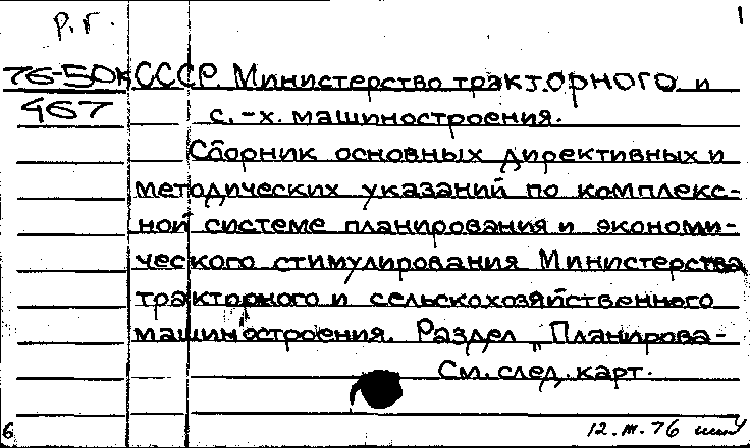 1
р.г.
76-50к СССР. Министерство тракторного и
467 с.-х. машиностроения.
Сборник основных директивных и
методических указаний по комплекс-
ной системе планирования и экономи-
ческого стимулирования Министерства
тракторного и сельскохозяйственного
машиностроения. Раздел „Планирова-
См. след. карт.
6 12.III.76